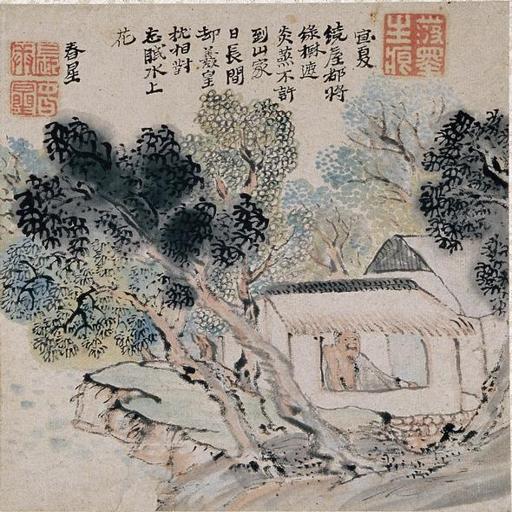 宜夏
繞屋都將
綠樹遮
炎蒸不許
到山家
日長閒
却羲皇
枕相對
忘眠水上
花
春星